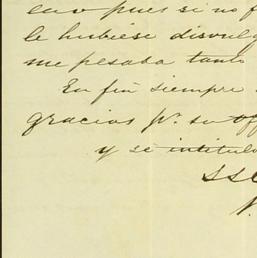 eso pues si no f
le hubiese disvulg
me pesaba tanto
En fin siempre
gracias pr. su off
y se intitula
SS